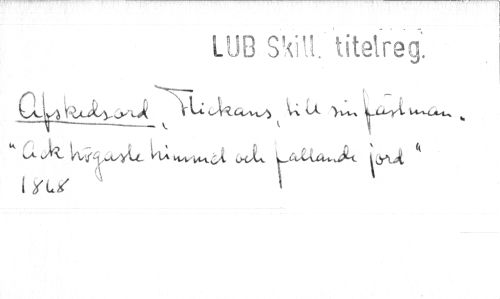 LUB Skill. titelreg.
Afskedsord, Flickans, till sin fästman.
"Ack högaste himmel och fallande jord"
1868